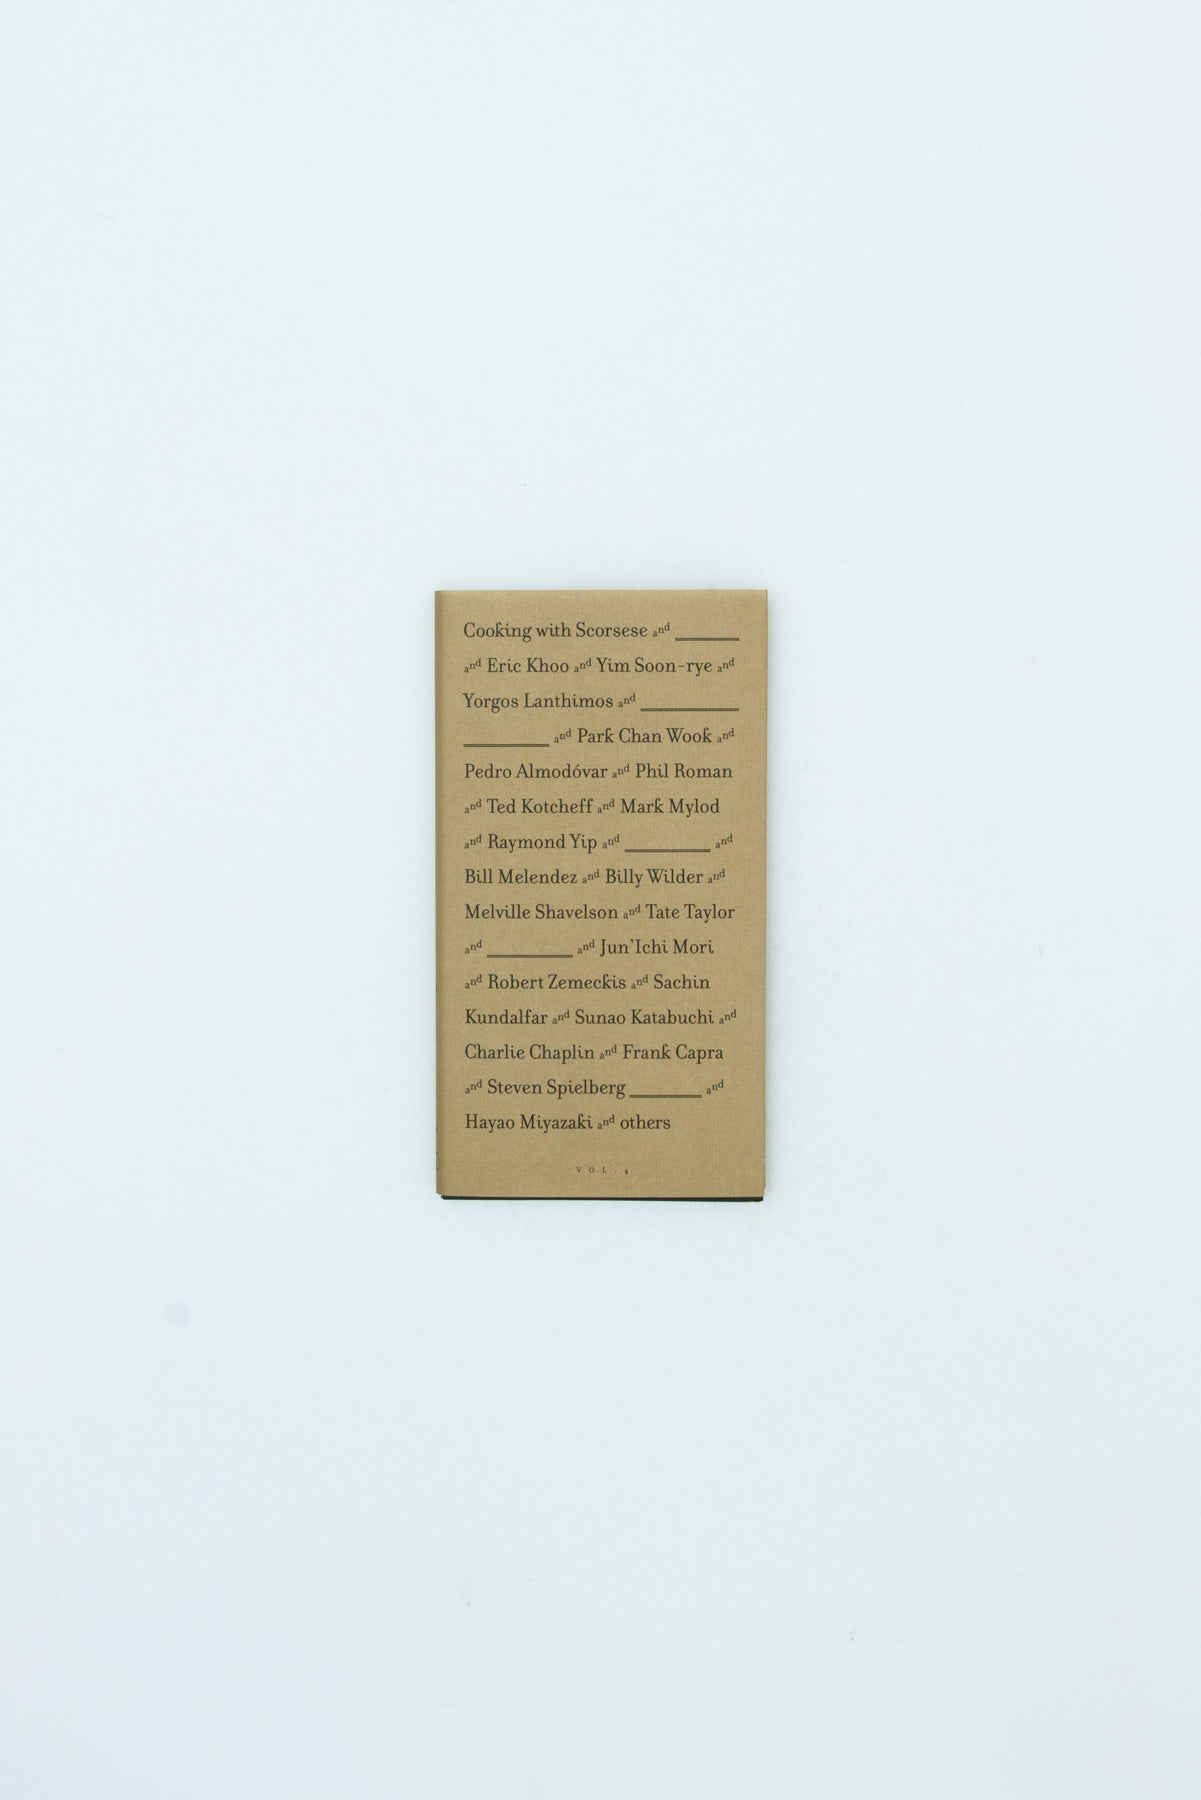 Cooking with Scorsese and ______
and Eric Khoo and Yim Soon-rye and
Yorgos Lanthimos and ______
______ and Park Chan Wook and
Pedro Almodóvar and Phil Roman
and Ted Kotcheff and Mark Mylod
and Raymond Yip and ______ and
Bill Melendez and Billy Wilder and
Melville Shavelson and Tate Taylor
and ______ and Jun'Ichi Mori
and Robert Zemeckis and Sachin
Kundalfar and Sunao Katabuchi and
Charlie Chaplin and Frank Capra
and Steven Spielberg ______ and
Hayao Miyazaki and others
VOL.4